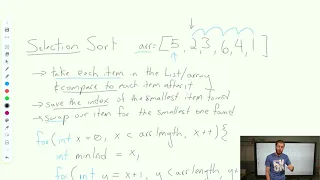 Selection Sort arr=[5,2,3,6,4,1]
→ take each item in the List/array
& compare to each item after it
→ save the index of the smallest item found
→ swap our item for the smallest one found
for(int x = 0, x < arr.length, x++){
int minInd = x,
for(int y = x+1, y < arr.length, y